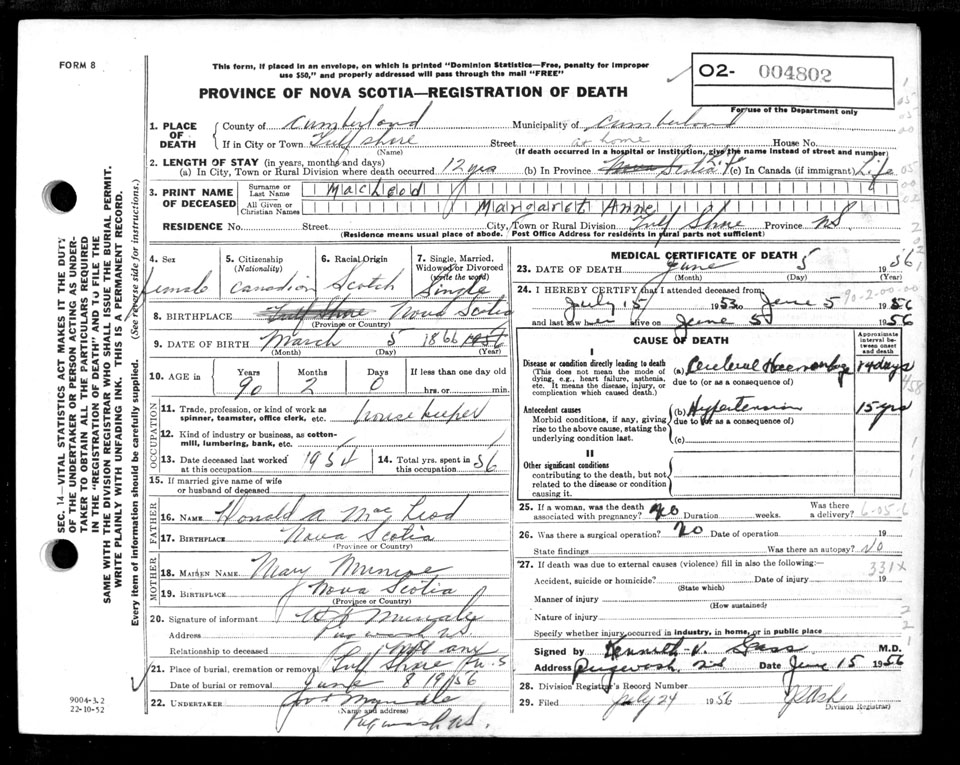 FORM 8
This form, if placed in an envelope, on which is printed "Dominion Statistics—Free, penalty for improper
use $50," and properly addressed will pass through the mail "FREE"
O2- 004802
For use of the Department only
PROVINCE OF NOVA SCOTIA—REGISTRATION OF DEATH
1. PLACE OF DEATH
County of Cumberland Municipality of Cumberland
If in City or Town Gulf Shore Street at home House No.
(Name) (If death occurred in a hospital or institution, give the name instead of street and number)
2. LENGTH OF STAY (in years, months and days)
(a) In City, Town or Rural Division where death occurred 12 yrs (b) In Province Nova Scotia Life (c) In Canada (if immigrant) Life
3. PRINT NAME OF DECEASED
Surname or Last Name MacLeod
All Given or Christian Names Margaret Anne
RESIDENCE No. Street City, Town or Rural Division Gulf Shore Province NS
(Residence means usual place of abode. Post Office Address for residents in rural parts not sufficient)
4. Sex female
5. Citizenship (Nationality) Canadian
6. Racial Origin Scotch
7. Single, Married, Widowed or Divorced (write the word) Single
8. BIRTHPLACE Gulf Shore Nova Scotia
(Province or Country)
9. DATE OF BIRTH March 5 1866 1956
(Month) (Day) (Year)
10. AGE in Years 90 Months 2 Days 0 If less than one day old hrs. or min.
OCCUPATION
11. Trade, profession, or kind of work as spinner, teamster, office clerk, etc. housekeeper
12. Kind of industry or business, as cotton-mill, lumbering, bank, etc.
13. Date deceased last worked at this occupation 1954
14. Total yrs. spent in this occupation 56
15. If married give name of wife or husband of deceased
FATHER
16. NAME Donald A MacLeod
17. BIRTHPLACE Nova Scotia
(Province or Country)
MOTHER
18. MAIDEN NAME Mary Munroe
19. BIRTHPLACE Nova Scotia
(Province or Country)
20. Signature of informant
Address Pugwash NS
Relationship to deceased Not any
21. Place of burial, cremation or removal Gulf Shore N.S
Date of burial or removal June 8 1956
22. UNDERTAKER
(Name and address)
Pugwash NS.
9004-3.2
22-10-52
SEC. 14—VITAL STATISTICS ACT MAKES IT THE DUTY
OF THE UNDERTAKER OR PERSON ACTING AS UNDER-
TAKER TO OBTAIN ALL THE PARTICULARS REQUIRED
IN THE "REGISTRATION OF DEATH" AND TO FILE THE
SAME WITH THE DIVISION REGISTRAR WHO SHALL ISSUE THE BURIAL PERMIT.
WRITE PLAINLY WITH UNFADING INK. THIS IS A PERMANENT RECORD.
Every item of information should be carefully supplied. (See reverse side for instructions.)
MEDICAL CERTIFICATE OF DEATH
23. DATE OF DEATH June 5 1956
(Month) (Day) (Year)
24. I HEREBY CERTIFY that I attended deceased from:
July 15 1953 to June 5 1956
and last saw her alive on June 5 1956
90-2-00-00
CAUSE OF DEATH
Approximate interval between onset and death
I
Disease or condition directly leading to death
(This does not mean the mode of dying, e.g., heart failure, asthenia, etc. It means the disease, injury, or complication which caused death.)
(a) Cerebral Haemorrhage 14 days
due to (or as a consequence of)
Antecedent causes
Morbid conditions, if any, giving rise to the above cause, stating the underlying condition last.
(b) Hypertension 15 yrs
due to (or as a consequence of)
(c)
II
Other significant conditions
contributing to the death, but not related to the disease or condition causing it.
25. If a woman, was the death associated with pregnancy? No Duration weeks. Was there a delivery?
6-05-6
26. Was there a surgical operation? No Date of operation 19
State findings Was there an autopsy? No
27. If death was due to external causes (violence) fill in also the following:
331X
Accident, suicide or homicide? Date of injury 19
(State which)
Manner of injury
(How sustained)
Nature of injury
Specify whether injury occurred in industry, in home, or in public place
Signed by Kenneth V. Gass M.D.
Address Pugwash NS Date June 15 1956
28. Division Registrar's Record Number
29. Filed July 24 1956
Division Registrar)